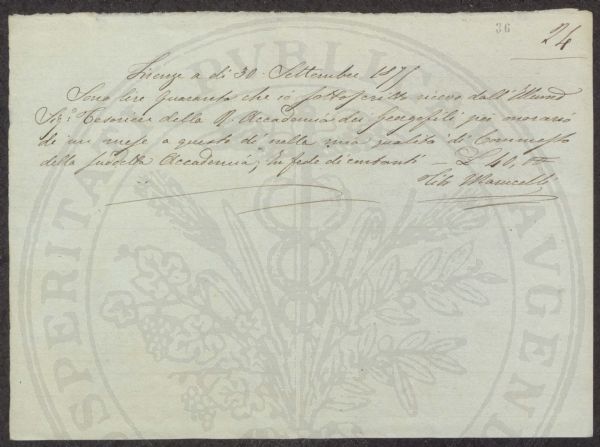 36
24
Firenze a dì 30 Settembre 187
Sono lire Quaranta che io sottoscritto ricevo dall' Illmo
Sig.e Tesoriere della R. Accademia dei Georgofili per
di un mese a questo dì nella mia qualità di Commesso
della suddetta Accademia, In fede di contanti — £ 40,00
Tito
PROSPERITATI PUBLICAE AUGENDAE